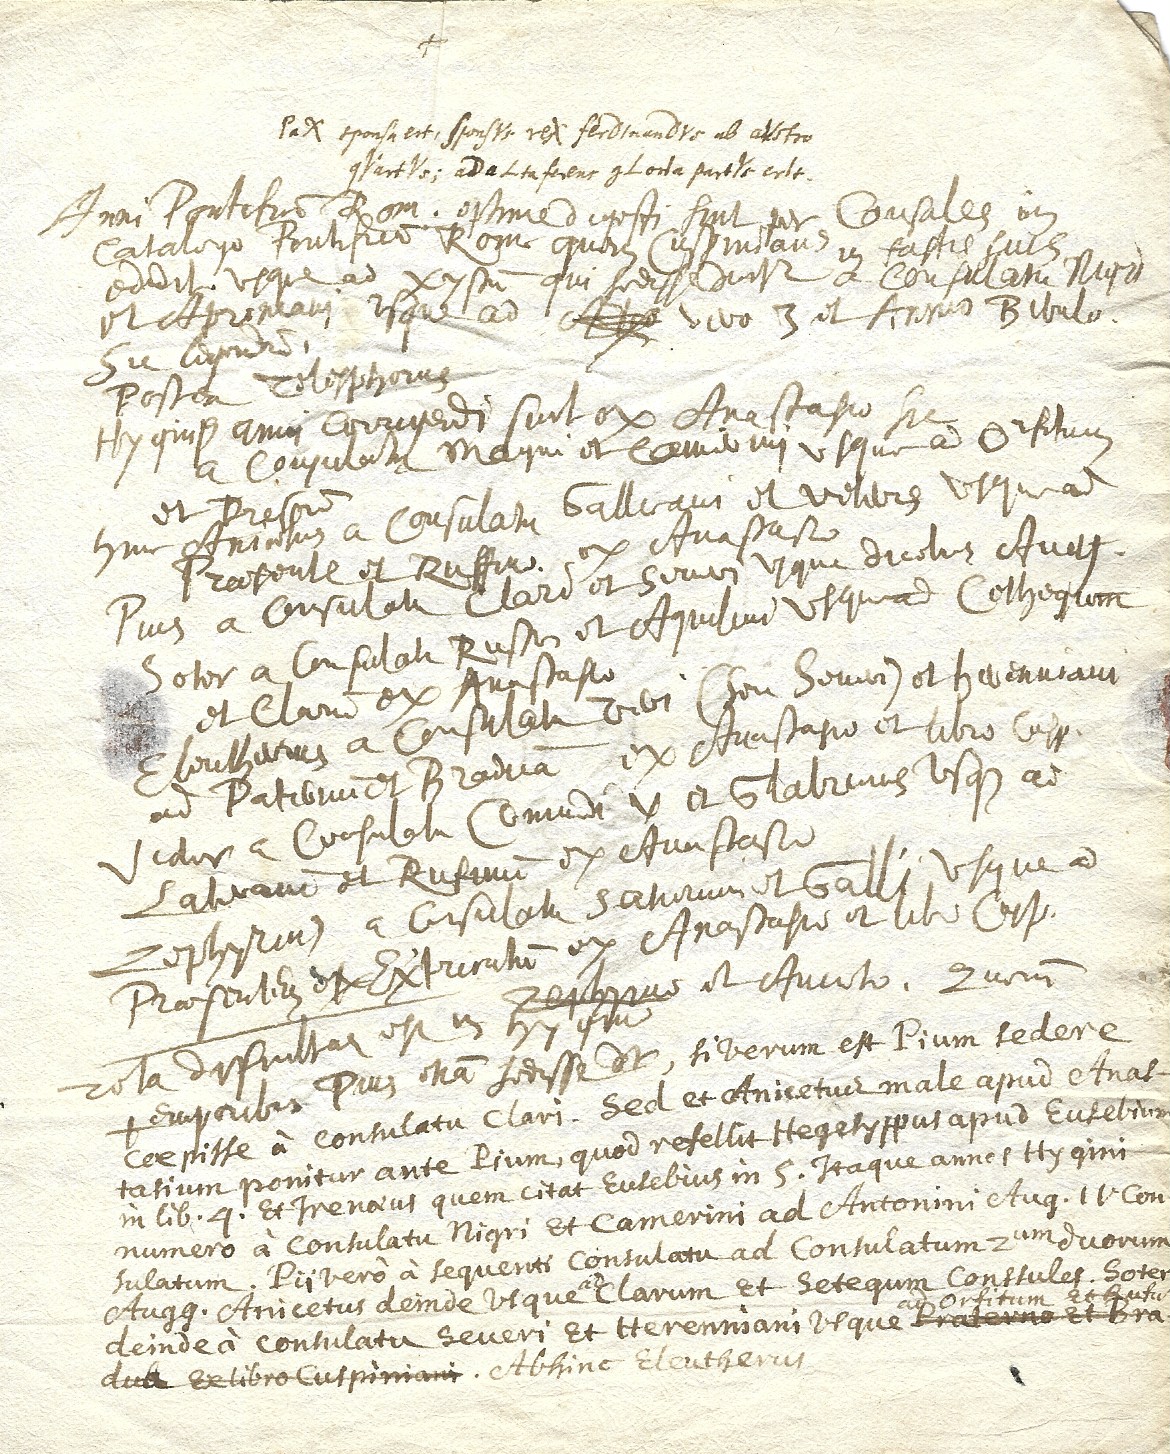 +
PaX sponsa est, sponsVs reX ferdInandVs ab aVstro
qVartVs; aDaLta ferens gLorIa partVs erIt.
Anni Pontificū Rom. optime digesti sunt per Consules in
Catalogo Pontificū Rome quem Cuspinianus in fastis suis
edidit usque ad Xystū qui sedisse dicitur a Consulatu Nigri
et Aproniani usque ad vero 3 et Annio Bibulo.
Sic legendū,
Postea Telesphorus
Hyginꝰ anni corrigendi sunt ex Anastasio sic
a Consulatu Magni et Camerini usque ad Orfitum
et Priscū
hinc Anicetus a Consulatu Gallicani et Veteris usque ad
Praesente et Ruffino. ex Anastasio
Pius a Consulatu Clari et Severi usque duobus Augg.
Soter a Consulatu Rustici et Aquilini usque ad Cethegum
et Clarū ex Anastasio
Eleutherius a Consulatu Veri (seu Severi) et herenniani
ad Paternū et Braduā ex Anastasio et libro Cusp.
Victor a Consulatu Commodi V et Glabrionis usq; ad
Lateranū et Rufinū ex Anastasio
Zephyrinꝰ a Consulatu Saturnini et Galli usque ad
Praesentem et Extricatū ex Anastasio et libro Cusp.
Tota difficultas est in Hygino et Aniceto. Quorū
temporibus Pius etiā sedisse dr, si verum est Pium sedere
coepisse à consulatu Clari. Sed et Anicetus male apud Anas-
tasium ponitur ante Pium, quod refellit Hegesyppus apud Eusebium
in lib. 4. Et Irenæus quem citat Eusebius in 5. Itaque annos Hygini
numero à Consulatu Nigri Et Camerini ad Antonini Aug. IV Con
sulatum. Pij verò à sequenti Consulatu ad Consulatum 2um duorum
Augg. Anicetus deinde Vsque ad Clarum Et Setegum Consules. Soter
ad Orfitum Et Rufū
deinde à Consulatu Severi Et Herenniani Vsque Praterno Et Bra
dua Ex libro Cuspiniani. Abhinc Eleutherus